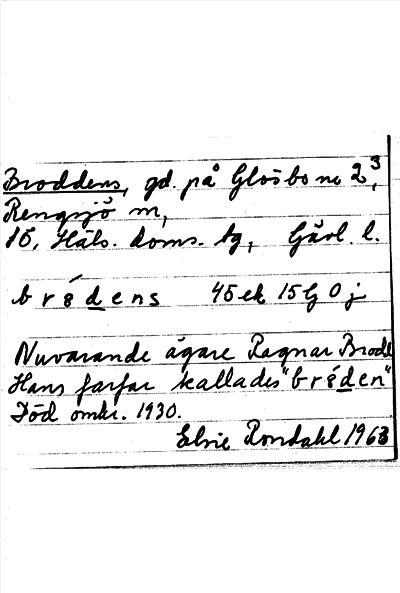 Broddens, gd. på Glösbo nr 2³,
Rengsjö sn,
Häls. doms. tg, Gävl. l.
bródens 45 ek 15 G 0 j
Nuvarande ägare Ragnar Brodd
Hans farfar kallades "bróden"
Död omkr. 1930.
Elsie Rondahl 1963